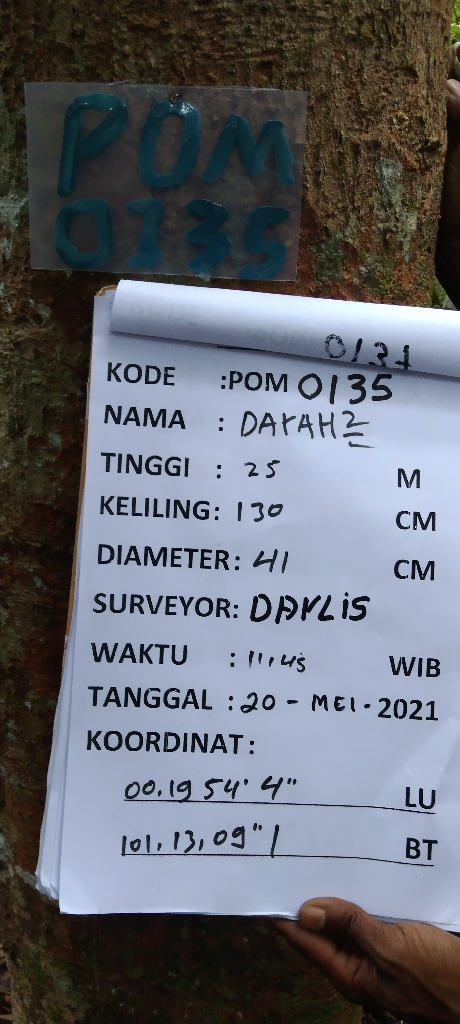 POM
0135
0134
KODE :POM 0135
NAMA : DArAH2
TINGGI : 25 M
KELILING: 130 CM
DIAMETER: 41 CM
SURVEYOR: DArLiS
WAKTU : 11.45 WIB
TANGGAL : 20 - MEI - 2021
KOORDINAT:
00.19 54' 4" LU
101.13,09" 1 BT